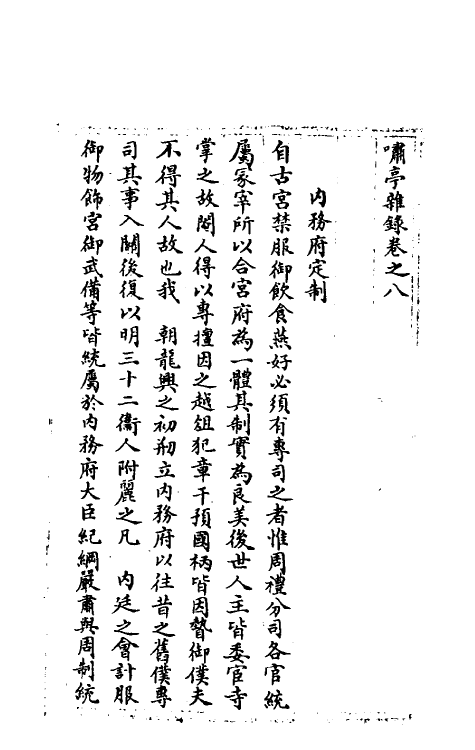 嘯亭雜錄卷之八
内務府定制
自古宮禁服御飲食燕好必須有專司之者惟周禮分司各官統
屬冢宰所以合宮府為一體其制實為良美後世人主皆委宦寺
掌之故閹人得以專擅因之越俎犯章干預國柄皆因暬御僕夫
不得其人故也我　朝龍興之初剏立内務府以往昔之舊僕專
司其事入關後復以明三十二衞人附麗之凡　内廷之會計服
御物飾宮御武備等皆統屬於内務府大臣紀綱嚴肅與周制統